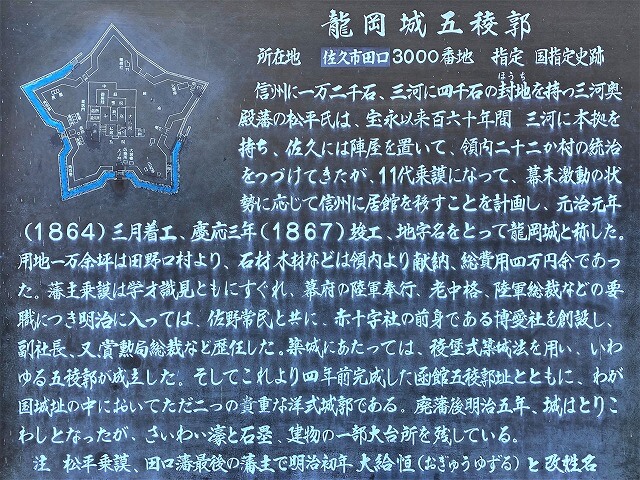 龍岡城五稜郭
所在地 佐久市田口3000番地 指定 国指定史跡
信州に一万二千石、三河に四千石の封地を持つ三河奥
ほうち
殿藩の松平氏は、宝永以来百六十年間 三河に本拠を
持ち、佐久には陣屋を置いて、領内二十二か村の統治
をつづけてきたが、11代乗謨になって、幕末激動の状
勢に応じて信州に居館を移すことを計画し、元治元年
(1864)三月着工、慶応三年(1867)竣工、地字名をとって龍岡城と称した。
用地一万余坪は田野口村より、石材木材などは領内より献納、総費用四万円余であっ
た。藩主乗謨は学才識見ともにすぐれ、幕府の陸軍奉行、老中格、陸軍総裁などの要
職につき明治に入っては、佐野常民と共に、赤十字社の前身である博愛社を創設し、
副社長、又賞勲局総裁など歴任した。築城にあたっては、稜堡式築城法を用い、いわ
ゆる五稜郭が成立した。そしてこれより四年前完成した函館五稜郭址とともに、わが
国城址の中においてただ二つの貴重な洋式城郭である。廃藩後明治五年、城はとりこ
わしとなったが、さいわい濠と石塁、建物の一部大台所を残している。
注 松平乗謨、田口藩最後の藩主で明治初年大給恒(おぎゅうゆずる)と改姓名